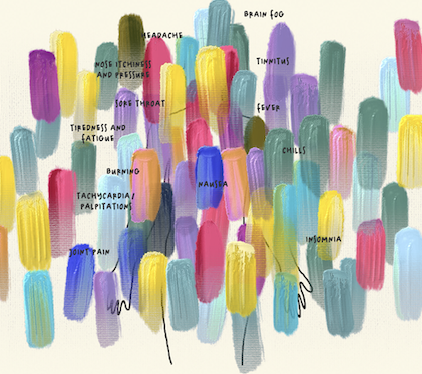 BRAIN FOG
HEADACHE
TINNITUS
NOSE ITCHINESS
AND PRESSURE
SORE THROAT
FEVER
TIREDNESS AND
FATIGUE
CHILLS
BURNING
NAUSEA
TACHYCARDIA/
PALPITATIONS
INSOMNIA
JOINT PAIN